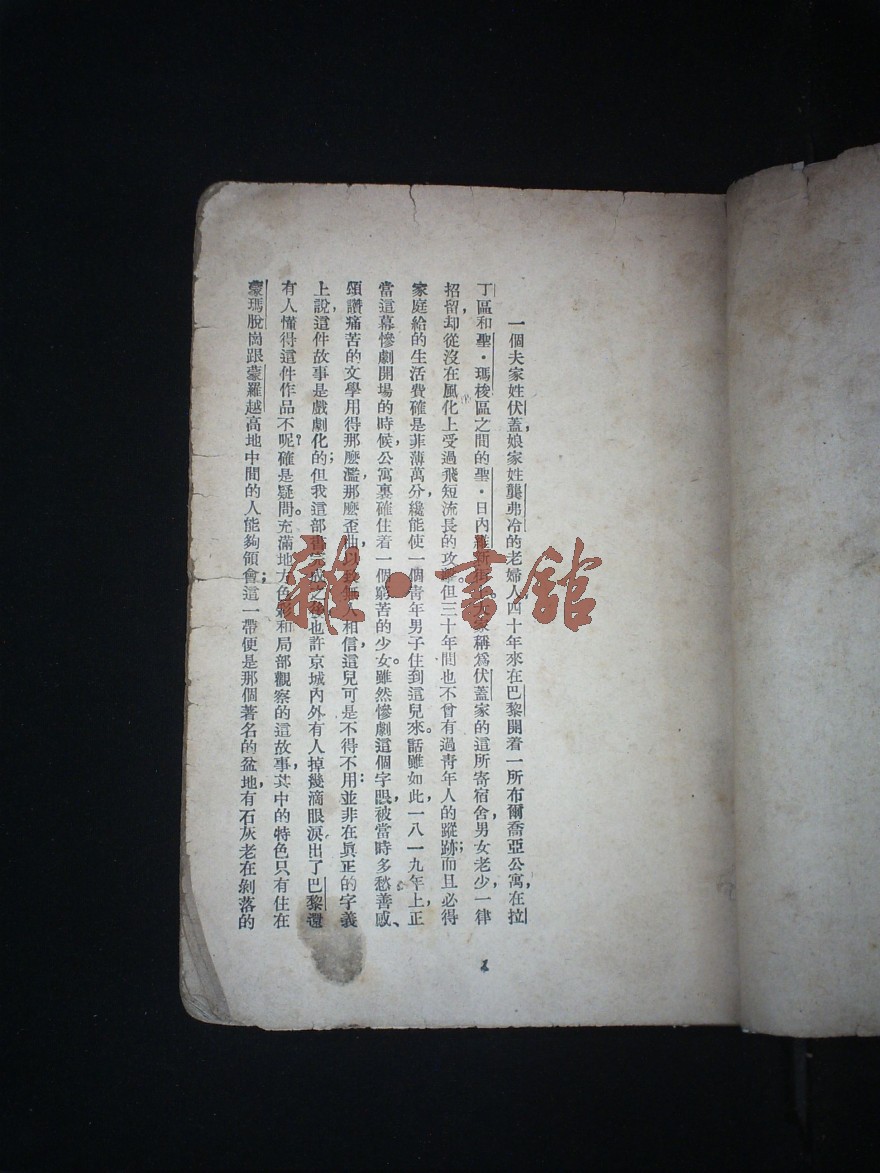 一個夫家姓伏蓋，娘家姓龔弗冷的老婦人四十年來在巴黎開着一所布爾喬亞公寓，在拉
丁區和聖・瑪梭區之間的聖・日內 新 稱爲伏蓋家的這所寄宿舍，男女老少，一律
招留，却從沒在風化上受過飛短流長的攻 。但三十年間也不曾有過靑年人的蹤跡；而且必得
家庭給的生活費確是菲薄萬分，纔能使一個靑年男子住到這兒來。話雖如此，一八一九年上，正
當這幕慘劇開場的時候，公寓裏確住着一個窮苦的少女。雖然慘劇這個字眼，被當時多愁善感、
頌讚痛苦的文學用得那麼濫，那麼歪曲，以 無人相信，這兒可是不得不用：並非在眞正的字義
上說，這件故事是戲劇化的；但我這部 成之 也許京城內外有人掉幾滴眼淚。出了巴黎還
有人懂得這件作品不呢？確是疑問。充滿地方色彩和局部觀察的這故事，其中的特色只有住在
蒙瑪脫崗跟蒙羅越高地中間的人能夠領會；這一帶便是那個著名的盆地，有石灰老在剝落的
1
雜・書館